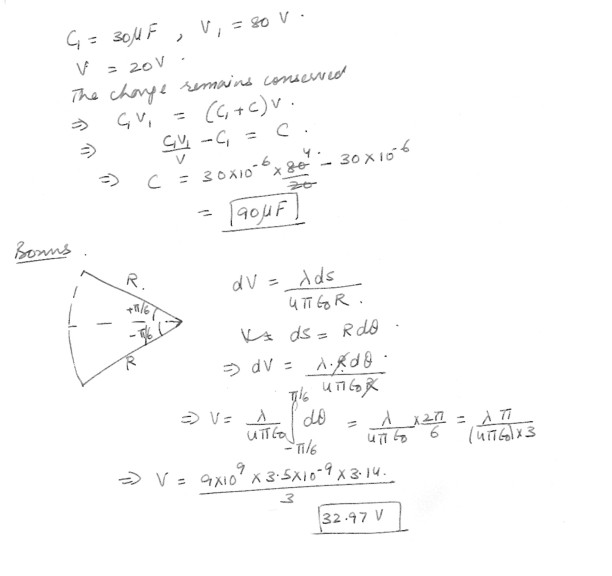 C₁ = 30μF , V₁ = 80 V.
V = 20V.
The charge remains conserved
⇒ C₁V₁ = (C₁ + C) V.
⇒ C₁V₁/V - C₁ = C.
⇒ C = 30×10⁻⁶ × 80⁴/20 - 30×10⁻⁶
= 90μF
Bonus.
R.
+π/6
-π/6
R
dV = λds/4π∈₀R.
ds = Rdθ.
⇒ dV = λ.Rdθ/4π∈₀R
⇒ V = λ/4π∈₀ ∫_{-π/6}^{π/6} dθ = λ/4π∈₀ × 2π/6 = λπ/(4π∈₀)×3
⇒ V = 9×10⁹ × 3.5×10⁻⁹ × 3.14./3
32.97 V